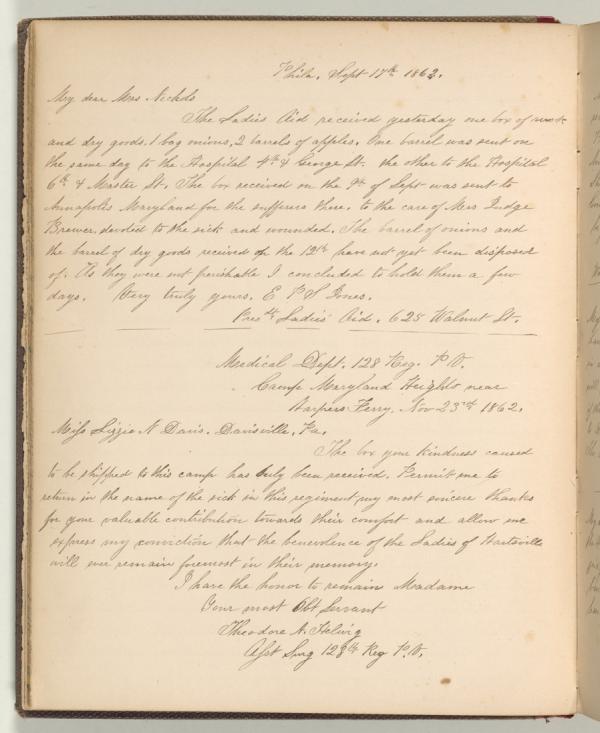 Phila, Sept 17th 1862.
My dear Mrs Nichols
The Ladies Aid received yesterday one box of
and dry goods, 1 bag onions, 2 barrels of apples. One barrel was sent on
the same day to the Hospital 4th & George St. the other to the Hospital
6th & Master St. The box received on the 9th of Sept was sent to
Annapolis Maryland for the sufferers there, to the care of Mrs Judge
Brewer, devoted to the sick and wounded. The barrel of onions and
the barrel of dry goods received on the 12th have not yet been disposed
of. As they were not perishable I concluded to hold them a few
days. Very truly yours. E P S Jones.
Pres't Ladies' Aid. 625 Walnut St.
Medical Dept. 128 Reg. P.V.
Camp Maryland Heights near
Harpers Ferry, Nov 23rd 1862.
Miss Lizzie N Davis. Davisville, Pa.
The box your kindness caused
to be shipped to this camp has duly been received. Permit me to
return in the name of the sick in this regiment, my most sincere thanks
for your valuable contribution towards their comfort and allow me
express my conviction that the benevolence of the Ladies of Hartsville
will ever remain foremost in their memory.
I have the honor to remain Madame
Your most Obt Servant
Theodore A. Helwig
Asst Surg 128th Reg P.V.